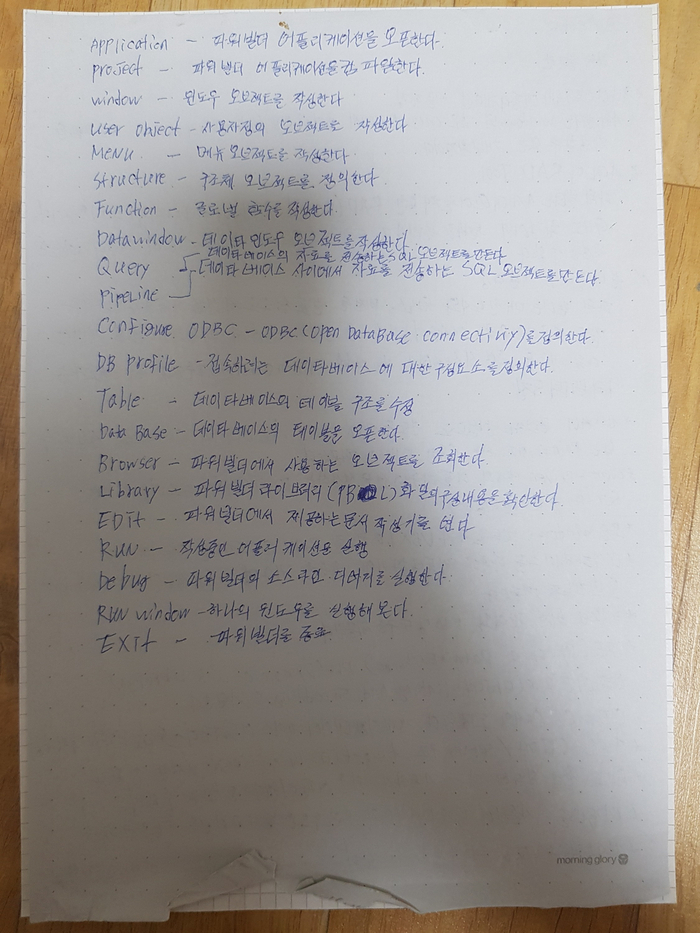 Application - 파워빌더 어플리케이션을 오픈한다.
project - 파워빌더 어플리케이션을 파일한다.
window - 윈도우 오브젝트를 작성한다
user object - 사용자정의 오브젝트를 작성한다
Menu - 메뉴 오브젝트를 작성한다.
structure - 구조체 오브젝트를 정의한다
Function - 글로벌 함수를 작성한다.
Datawindow - 데이타윈도우 오브젝트를 작성한다.
데이타베이스의 자료를 전송하는 SQL 오브젝트로 만든다
Query - 데이타베이스 사이에서 자료를 전송하는 SQL 오브젝트로 만든다.
pipeline
Configure ODBC - ODBC(Open DataBase connectivity)를 정의한다.
DB profile - 접속하려는 데이타베이스에 대한 구성요소를 정의한다.
Table - 데이타베이스의 테이블 구조를 수정
Data Base - 데이타베이스의 테이블을 오픈한다.
Browser - 파워빌더에서 사용하는 오브젝트를 조회한다.
Library - 파워빌더 라이브러리(PBL)화일의 구성내용을 확인한다.
EDit - 파워빌더에서 제공하는 문서 작성기를 연다.
Run - 작성중인 어플리케이션을 실행
Debug - 파워빌더의 소스라인 디버거를 실행한다.
Run window - 하나의 윈도우를 실행해 본다.
EXit - 파워빌더를 종료
morning glory